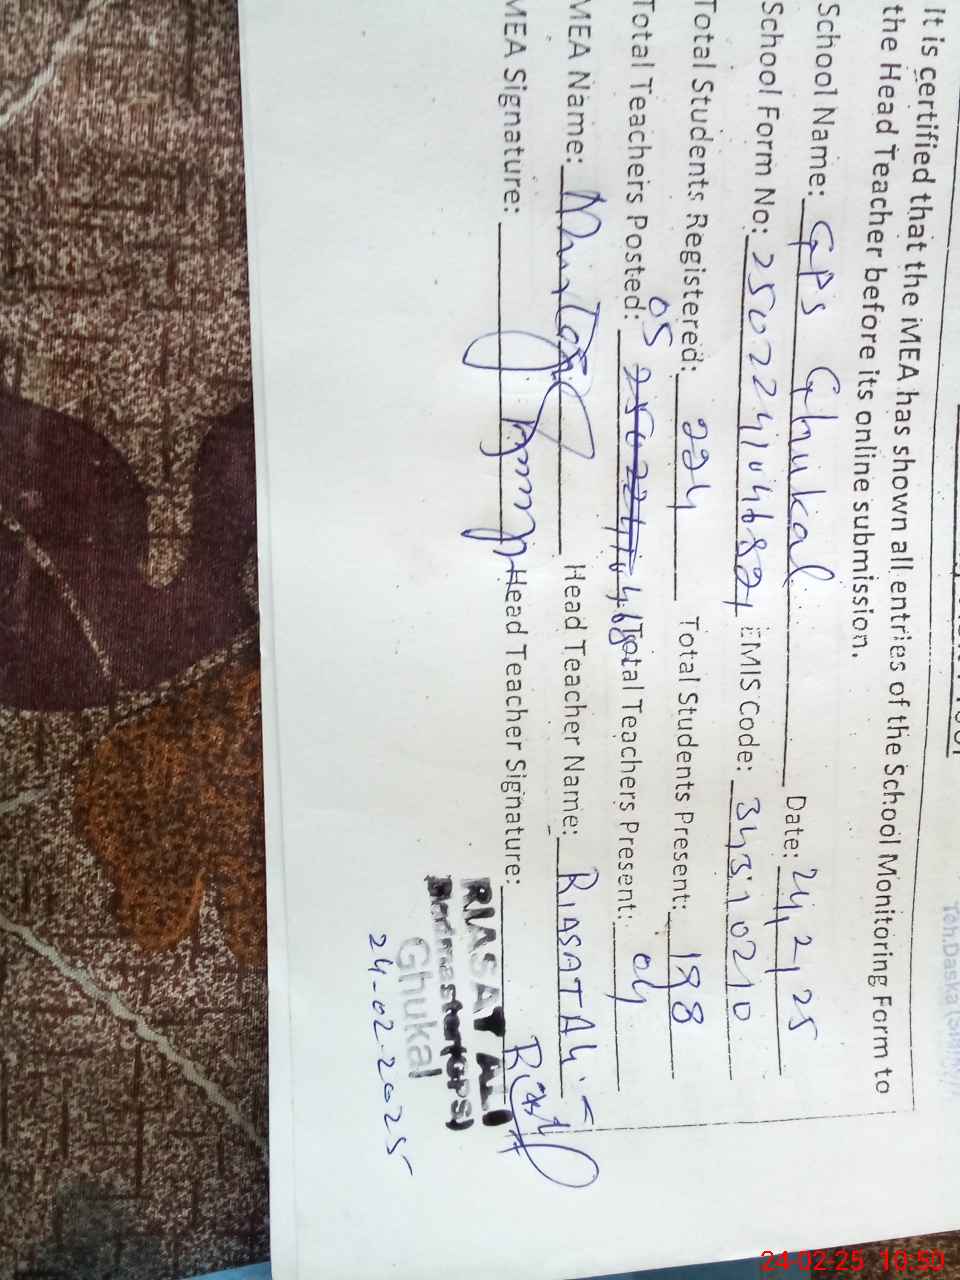 Teh.Daska (Sialkot)
It is certified that the iMEA has shown all entries of the School Monitoring Form to
the Head Teacher before its online submission.
School Name: GPS Ghukal Date: 24, 2, 25
School Form No: EMIS Code: 34310210
Total Students Registered: 224 Total Students Present: 198
05
Total Teachers Posted: Total Teachers Present: 04
MEA Name: Head Teacher Name: RIASAT Ali
MEA Signature: Head Teacher Signature:
RIASAT ALI
Headmaster(GPS)
Ghukal
24-02-2025
24-02-25 10:50